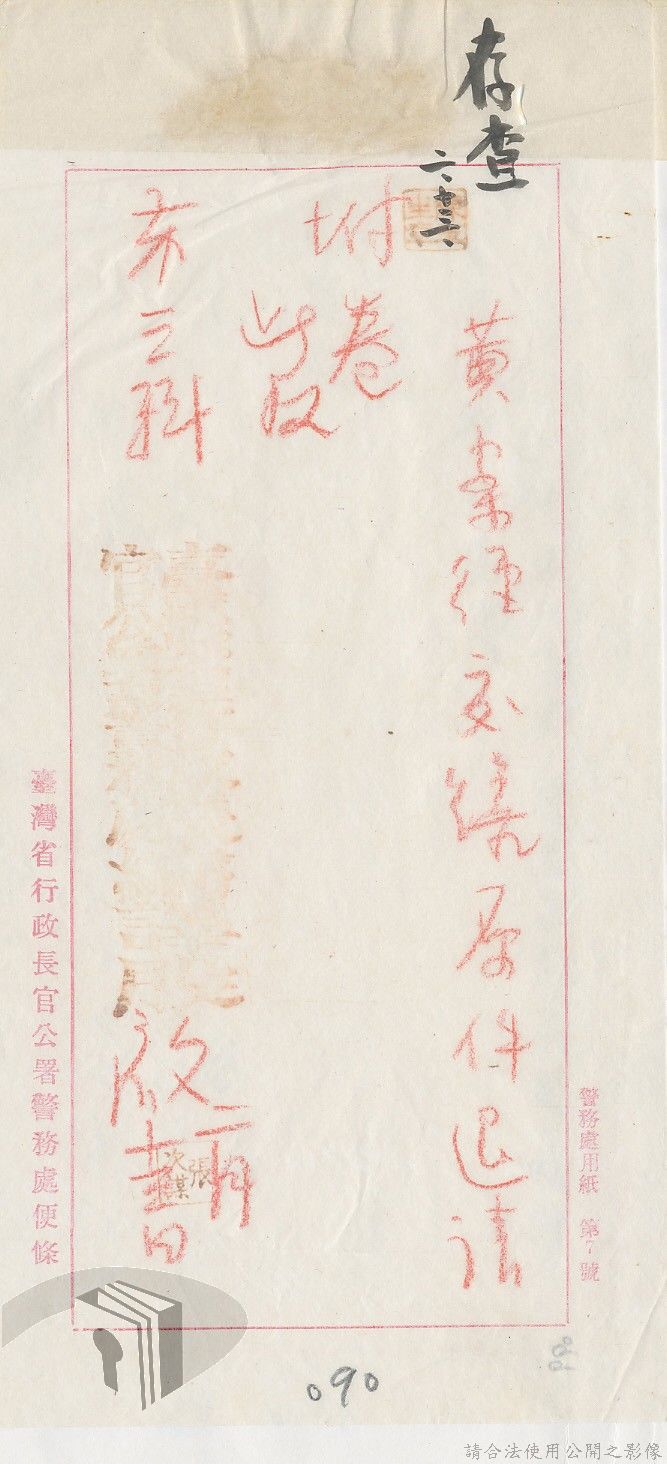 存查
二、
黃案經交繞原件退請
附卷
此致
第三科
啟
二月
日
張
次謀
臺灣省行政長官公署警務處便條
警務處用紙 第7號
090
請合法使用公開之影像